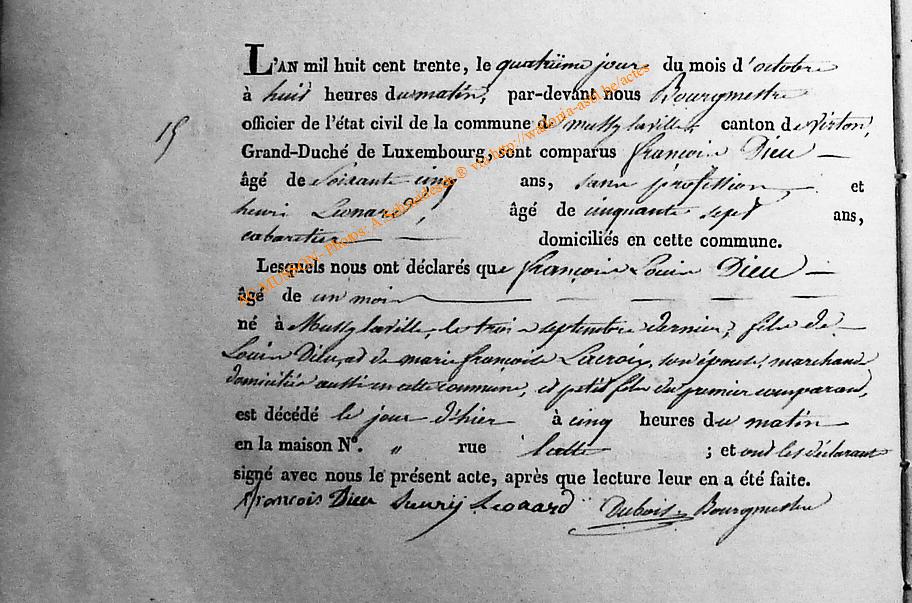 L'AN mil huit cent trente, le quatrième jour du mois d'octobre
à huit heures du matin, par-devant nous Bourgmestre
15 officier de l'état civil de la commune de mussy laville, canton de Virton,
Grand-Duché de Luxembourg, sont comparus françois Dieu —
âgé de soixante cinq ans, sans profession, et
henri Leonard, âgé de cinquante sept ans,
cabaretier — domiciliés en cette commune.
Lesquels nous ont déclarés que françois Louis Dieu —
âgé de un mois —
né à Mussy laville, le trois septembre dernier, fils de
Louis Dieu, et de marie françoise Lacroix, son épouse, marchands
domiciliés aussi en cette commune, et petit fils du premier comparant,
est décédé le jour d'hier à cinq heures du matin
en la maison N°. „ rue ; et ont les déclarant
signé avec nous le présent acte, après que lecture leur en a été faite.
françois Dieu henrij Leonard Dubois, Bourgmestre
AC MUSSON - Photos: A. ® via http://wallonia-asbl.be/actes